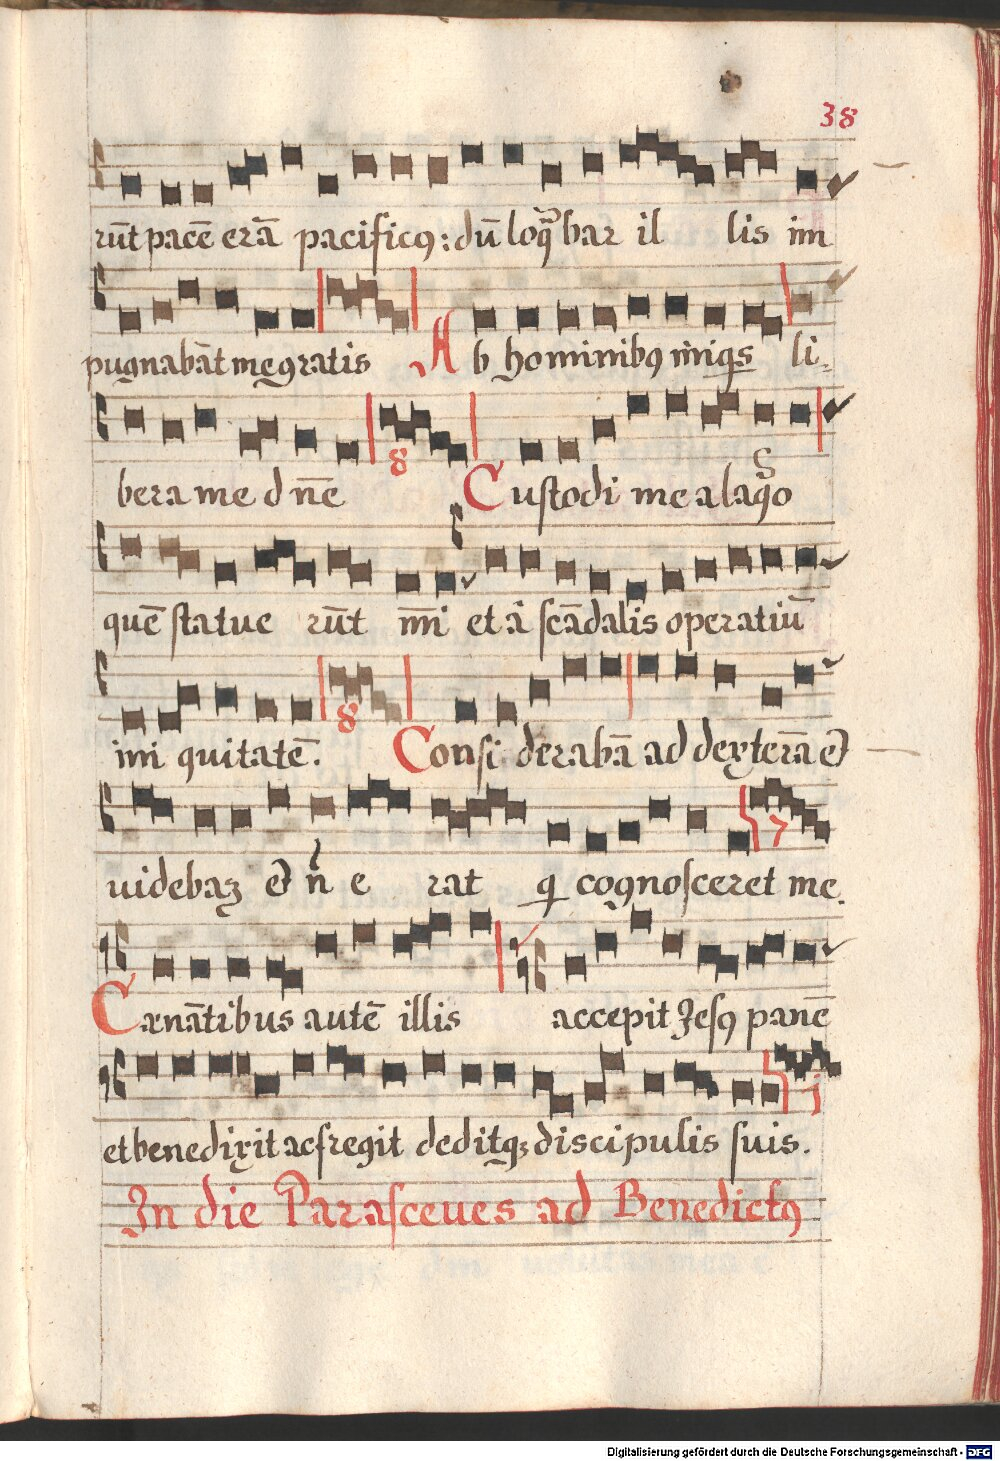 38
rūt pacē erā pacificꝯ: dū loq̄bar il lis im
pugnabāt me gratis Ab hominibꝯ iniqs li-
bera me dne
8 Custodi me a laqo
quē statue rūt m̄i et ā scādalis operatiū
imi quitatē. 8 Considerabā ad dexterā et
uidebaz et n̄ e rat q cognosceret me.
7
Cænātibus autē illis accepit Jesꝯ panē
et benedixit ac fregit deditqꝫ discipulis suis.
j
In die Parasceues ad Benedictꝯ
Digitalisierung gefördert durch die Deutsche Forschungsgemeinschaft - DFG